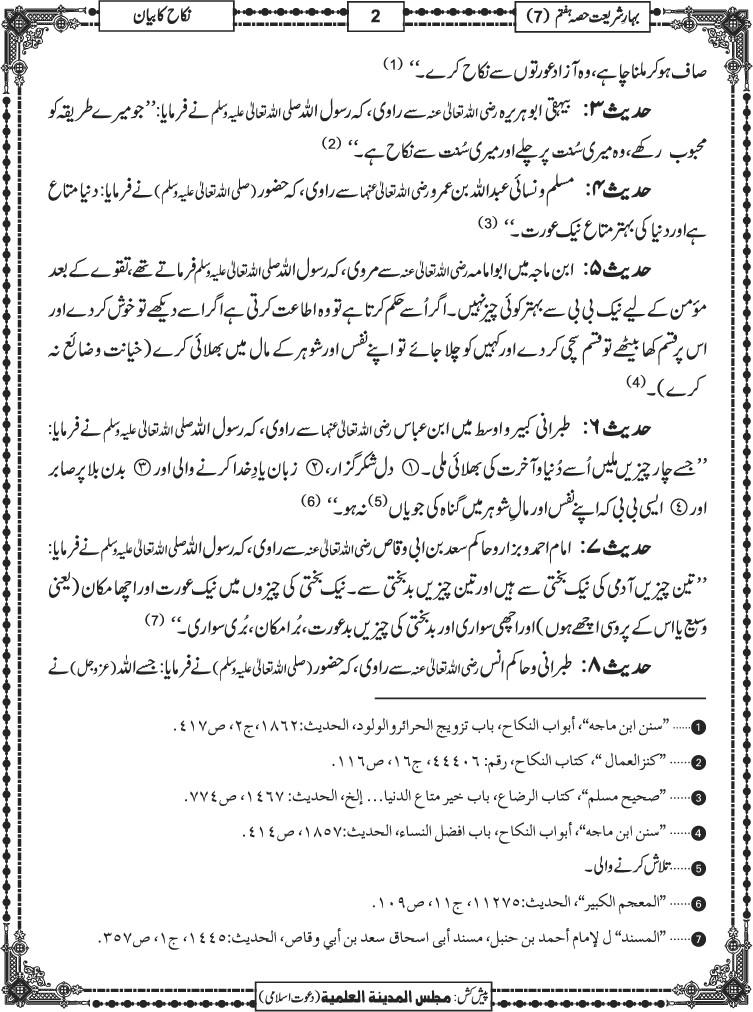 بہارِ شریعت حصہ ہفتم (7)
2
نکاح کا بیان
صاف ہو کر ملنا چاہے، وہ آزاد عورتوں سے نکاح کرے۔‘‘ (1)
حدیث ۳: بیہقی ابو ہریرہ رضی اللہ تعالیٰ عنہ سے راوی، کہ رسول اللہ صلی اللہ تعالیٰ علیہ وسلم نے فرمایا: ’’جو میرے طریقہ کو
محبوب رکھے، وہ میری سُنت پر چلے اور میری سُنت سے نکاح ہے۔‘‘ (2)
حدیث ۴: مسلم و نسائی عبداللہ بن عمرو رضی اللہ تعالیٰ عنہما سے راوی، کہ حضور (صلی اللہ تعالیٰ علیہ وسلم) نے فرمایا: دنیا متاع
ہے اور دنیا کی بہتر متاع نیک عورت۔‘‘ (3)
حدیث ۵: ابن ماجہ میں ابوامامہ رضی اللہ تعالیٰ عنہ سے مروی، کہ رسول اللہ صلی اللہ تعالیٰ علیہ وسلم فرماتے تھے، تقوے کے بعد
مؤمن کے لیے نیک بی بی سے بہتر کوئی چیز نہیں۔ اگر اُسے حکم کرتا ہے تو وہ اطاعت کرتی ہے اگر اسے دیکھے تو خوش کر دے اور
اس پر قسم کھا بیٹھے تو قسم سچی کر دے اور کہیں کو چلا جائے تو اپنے نفس اور شوہر کے مال میں بھلائی کرے (خیانت و ضائع نہ
کرے)۔ (4)
حدیث ۶: طبرانی کبیر و اوسط میں ابن عباس رضی اللہ تعالیٰ عنہما سے راوی، کہ رسول اللہ صلی اللہ تعالیٰ علیہ وسلم نے فرمایا:
’’جسے چار چیزیں ملیں اُسے دُنیا و آخرت کی بھلائی ملی۔ ① دل شکر گزار، ② زبان یادِ خدا کرنے والی اور ③ بدن بلا پر صابر
اور ④ ایسی بی بی کہ اپنے نفس اور مالِ شوہر میں گناہ کی جویاں (5) نہ ہو۔‘‘ (6)
حدیث ۷: امام احمد و بزار و حاکم سعد بن ابی وقاص رضی اللہ تعالیٰ عنہ سے راوی، کہ رسول اللہ صلی اللہ تعالیٰ علیہ وسلم نے فرمایا:
’’تین چیزیں آدمی کی نیک بختی سے ہیں اور تین چیزیں بدبختی سے۔ نیک بختی کی چیزوں میں نیک عورت اور اچھا مکان (یعنی
وسیع یا اس کے پروسی اچھے ہوں) اور اچھی سواری اور بدبختی کی چیزیں بد عورت، بُرا مکان، بُری سواری۔‘‘ (7)
حدیث ۸: طبرانی و حاکم انس رضی اللہ تعالیٰ عنہ سے راوی، کہ حضور (صلی اللہ تعالیٰ علیہ وسلم) نے فرمایا: جسے اللہ (عزوجل) نے
1 ...... ”سنن ابن ماجه“، أبواب النكاح، باب تزويج الحرائر والولود، الحديث: ١٨٦٢، ج٢، ص٤١٧.
2 ...... ”كنز العمال“، كتاب النكاح، رقم: ٤٤٤٠٦، ج١٦، ص١١٦.
3 ...... ”صحيح مسلم“، كتاب الرضاع، باب خير متاع الدنيا... إلخ، الحديث: ١٤٦٧، ص٧٧٤.
4 ...... ”سنن ابن ماجه“، أبواب النكاح، باب افضل النساء، الحديث: ١٨٥٧، ص٤١٤.
5 ...... تلاش کرنے والی۔
6 ...... ”المعجم الكبير“، الحديث: ١١٢٧٥، ج١١، ص١٠٩.
7 ...... ”المسند“ ل لإمام أحمد بن حنبل، مسند أبی اسحاق سعد بن أبي وقاص، الحديث: ١٤٤٥، ج١، ص٣٥٧.
پیش کش: مجلس المدینۃ العلمیۃ (دعوت اسلامی)